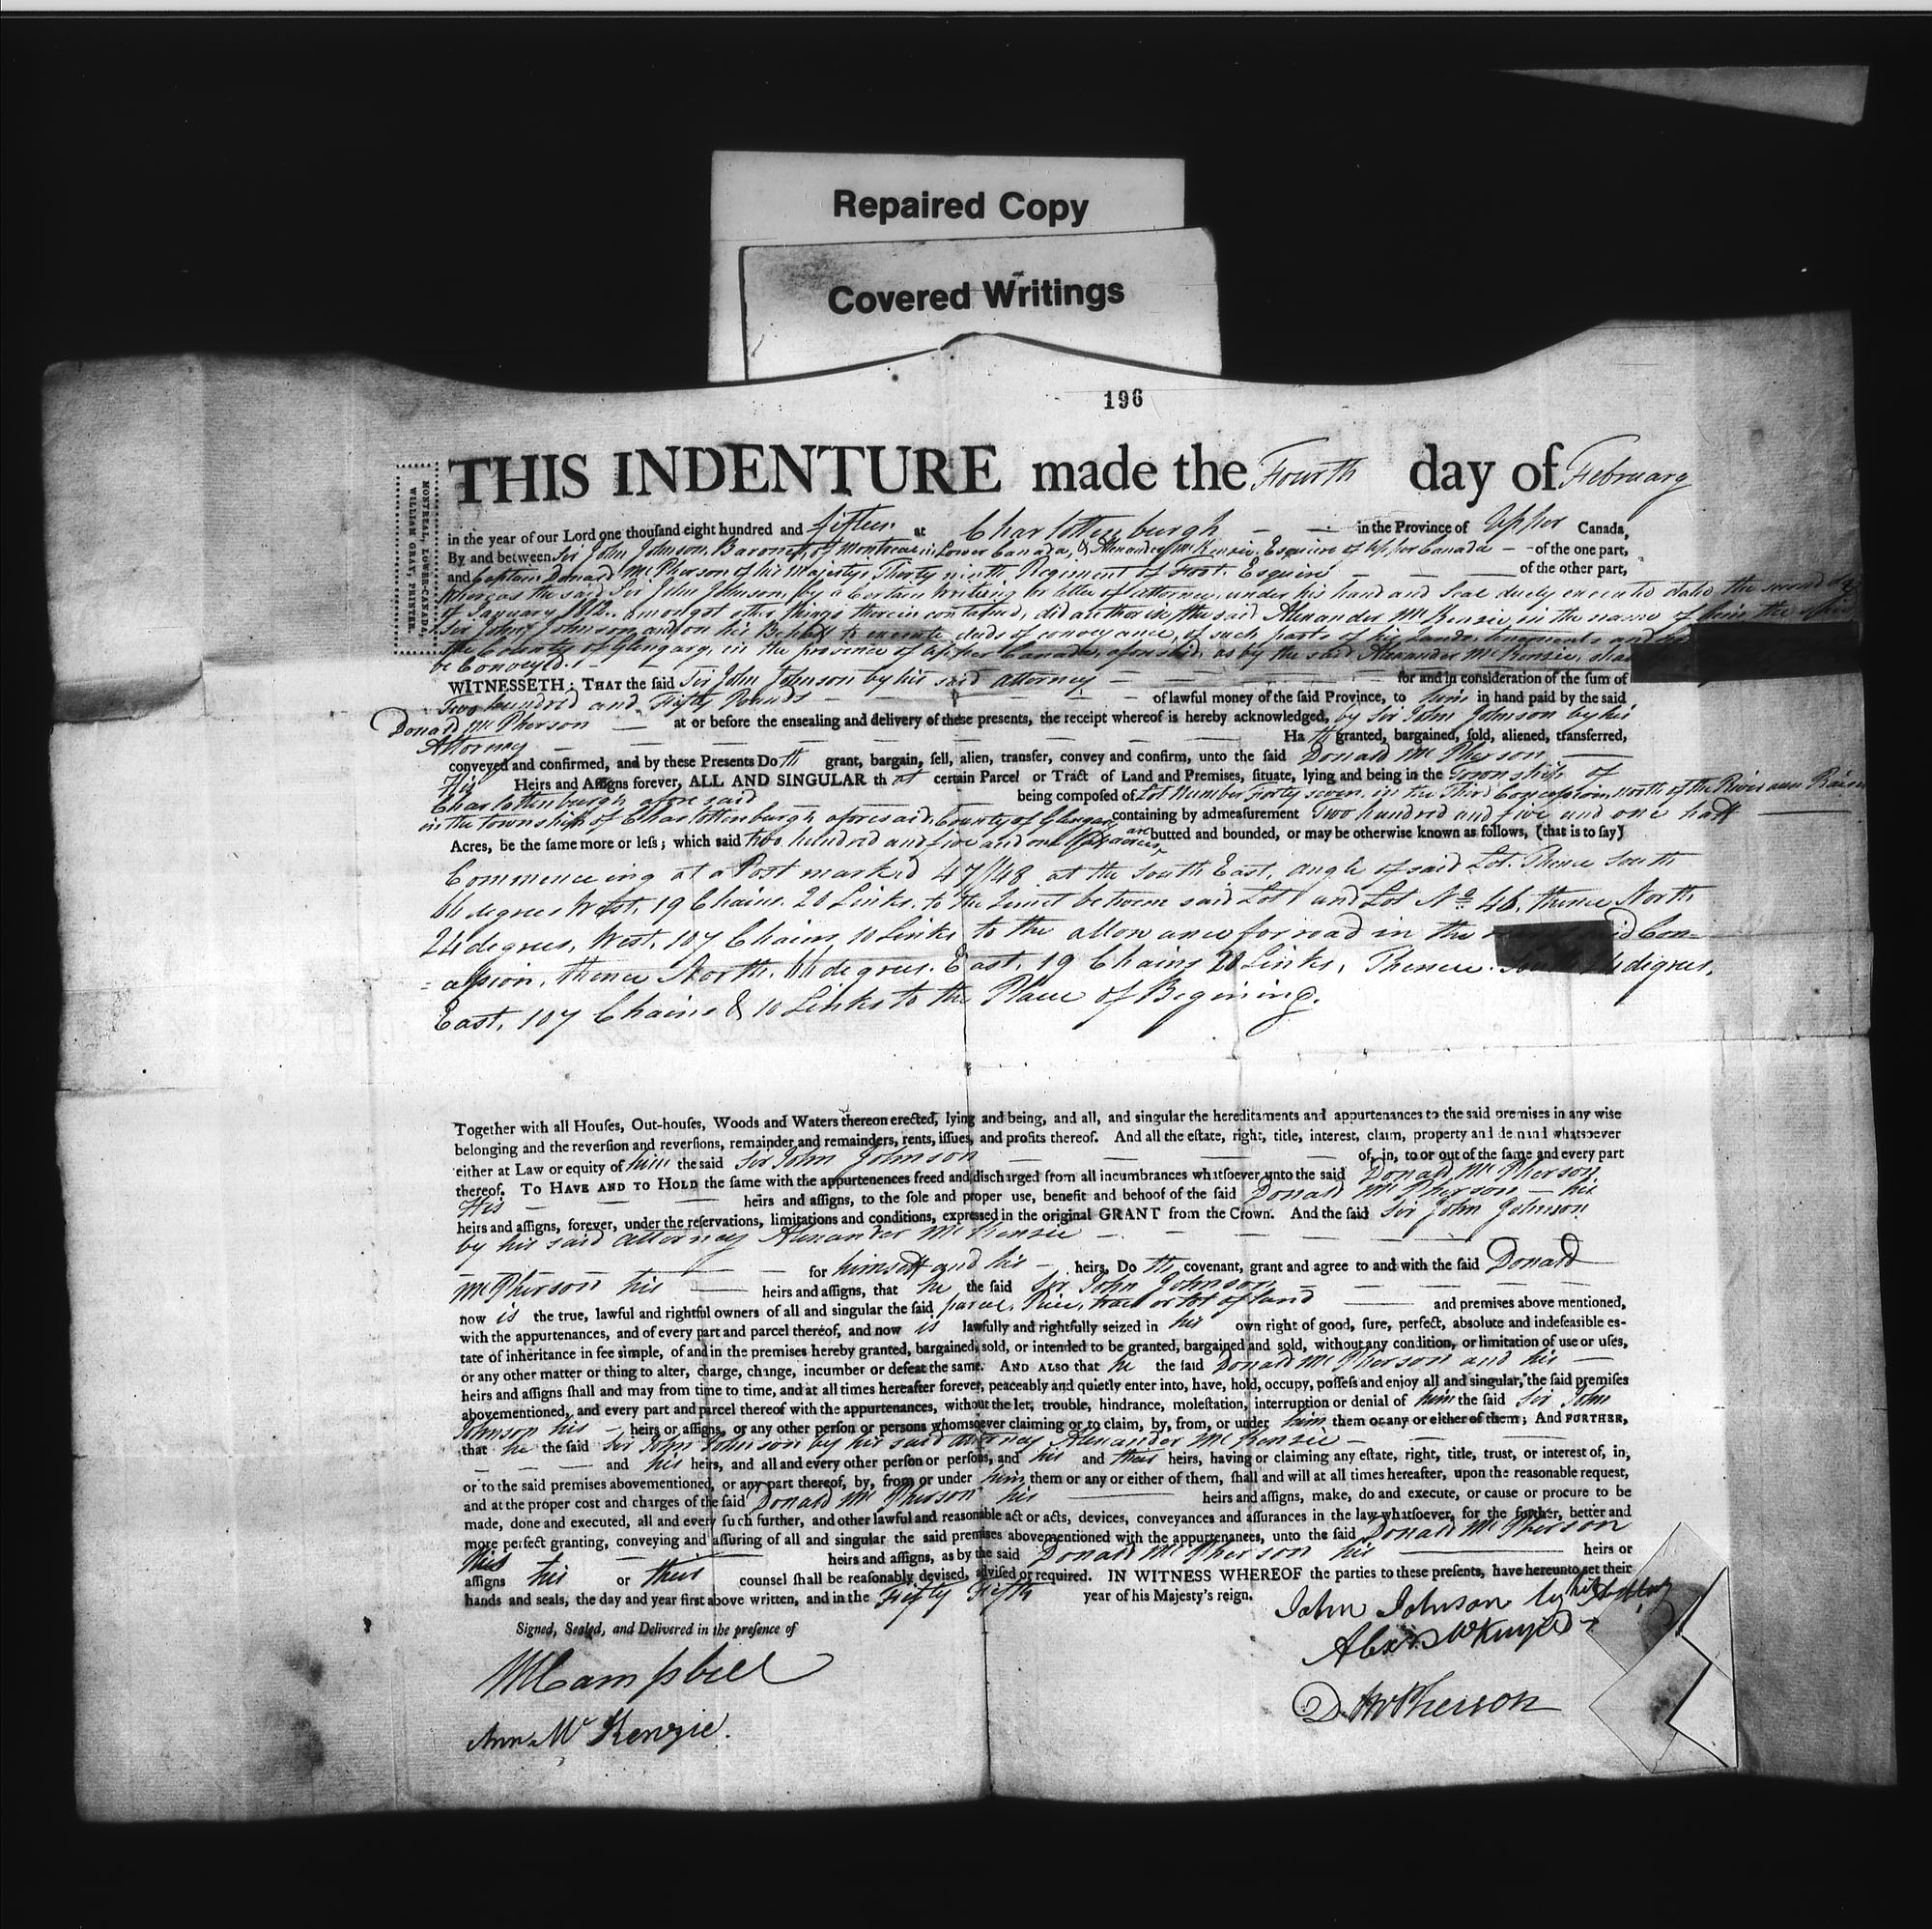 Repaired Copy
Covered Writings
196
MONTREAL, LOWER-CANADA,
WILLIAM GRAY, PRINTER.
THIS INDENTURE made the Fourth day of February
in the year of our Lord one thouſand eight hundred and fifteen at Charlottenburgh — — in the Province of Upper Canada,
By and between Sir John Johnson, Baronet, of Montreal in Lower Canada, & Alexander McKenzie Esquire of Upper Canada — - of the one part,
and Captain Donald McPherson of his Majestys Thirty ninth Regiment of Foot. Esquire — — of the other part,
Whereas the said Sir John Johnson, by a Certain writing or letter of attorney, under his hand and Seal duely executed dated the second day
of January 1812. amongst other things therein contained, did authorise the said Alexander McKenzie in the name of him the said
Sir John Johnson and on his Behalf to execute deeds of conveyance, of such parts of his Lands, tenements and
the County of Glengary, in the province of Upper Canada, aforesaid, as by the said Alexander McKenzie,
be Conveyed. -
WITNESSETH: THAT the ſaid Sir John Johnson by his said attorney — — — for and in conſideration of the ſum of
Two hundred and Fifty Pounds — — of lawful money of the ſaid Province, to him in hand paid by the ſaid
Donald McPherson — at or before the enſealing and delivery of theſe preſents, the receipt whereof is hereby acknowledged, by Sir John Johnson by his
Attorney — — — Hath granted, bargained, ſold, aliened, transferred,
conveyed and confirmed, and by theſe Preſents Doth grant, bargain, ſell, alien, transfer, convey and confirm, unto the ſaid Donald McPherson —
His Heirs and Aſſigns forever, ALL AND SINGULAR that certain Parcel or Tract of Land and Premiſes, ſituate, lying and being in the Township of
Charlottenburgh afore said being compoſed of Lot Number Forty seven in the Third Concession, north of the River aux Raisin
in the township of Charlottenburgh aforesaid County of Glengary containing by admeaſurement Two hundred and five and one half —
Acres, be the ſame more or leſs; which ſaid two hundred and five and one half acres are butted and bounded, or may be otherwiſe known as follows, (that is to ſay)
Commenceing at a Post marked 47//48 at the South East, angle of said Lot. Thence South
66 degrees West. 19 Chains. 20 Links. to the Limit betweene said Lot and Lot No 46. thence North
24 degrees, West, 107 Chains 10 Links to the allowance for road in the Con=
=cession, thence North. 66 degrees. East, 19 Chains 20 Links, Thence. degrees,
East, 107 Chains & 10 Links to the Place of Begining.
Together with all Houſes, Out-houſes, Woods and Waters thereon erected, lying and being, and all, and singular the hereditaments and appurtenances to the ſaid premiſes in any wiſe
belonging and the reverſion and reverſions, remainder and remainders, rents, iſſues, and profits thereof. And all the eſtate, right, title, interest, claim, property and demand whatsoever
either at Law or equity of him the ſaid Sir John Johnson — — — of, in, to or out of the ſame and every part
thereof. TO HAVE AND TO HOLD the ſame with the appurtenences freed and diſcharged from all incumbrances whatſoever unto the ſaid Donald McPherson
His — — heirs and aſſigns, to the ſole and proper uſe, benefit and behoof of the ſaid Donald McPherson — his
heirs and aſſigns, forever, under the reſervations, limitations and conditions, expreſſed in the original GRANT from the Crown. And the ſaid Sir John Johnson
by his said attorney Alexander McKenzie — — — —
— — — for himself and his — heirs, Doth covenant, grant and agree to and with the ſaid Donald
McPherson his — heirs and aſſigns, that he the ſaid Sir John Johnson
now is the true, lawful and rightful owners of all and ſingular the ſaid parcel, Piece, tract or lot of land — and premiſes above mentioned,
with the appurtenances, and of every part and parcel thereof, and now is lawfully and rightfully ſeized in his own right of good, ſure, perfect, abſolute and indefeaſible es-
tate of inheritance in fee ſimple, of and in the premiſes hereby granted, bargained, ſold, or intended to be granted, bargained and ſold, without any condition, or limitation of uſe or uſes,
or any other matter or thing to alter, charge, change, incumber or defeat the ſame. AND ALSO that he the ſaid Donald McPherson and his —
heirs and aſſigns ſhall and may from time to time, and at all times hereafter forever, peaceably and quietly enter into, have, hold, occupy, poſſeſs and enjoy all and ſingular, the ſaid premiſes
abovementioned, and every part and parcel thereof with the appurtenances, without the let, trouble, hindrance, moleſtation, interruption or denial of him the ſaid Sir John
Johnson his — heirs or aſſigns, or any other perſon or perſons whomſoever claiming or to claim, by, from, or under him them or any or either of them; And FURTHER,
that he the ſaid Sir John Johnson by his said attorney Alexander McKenzie —
— — and his heirs, and all and every other perſon or perſons, and his and their heirs, having or claiming any eſtate, right, title, trust, or interest of, in,
or to the ſaid premiſes abovementioned, or any part thereof, by, from or under him them or any or either of them, ſhall and will at all times hereafter, upon the reaſonable request,
and at the proper cost and charges of the ſaid Donald McPherson his — heirs and aſſigns, make, do and execute, or cauſe or procure to be
made, done and executed, all and every ſuch further, and other lawful and reaſonable act or acts, devices, conveyances and aſſurances in the law whatſoever, for the further, better and
more perfect granting, conveying and aſſuring of all and ſingular the ſaid premiſes abovementioned with the appurtenances, unto the ſaid Donald McPherson
his — heirs and aſſigns, as by the ſaid Donald McPherson his — heirs or
aſſigns his or their counſel ſhall be reaſonably deviſed, adviſed or required. IN WITNESS WHEREOF the parties to theſe preſents, have hereunto ſet their
hands and ſeals, the day and year first above written, and in the Fifty Fifth year of his Majesty's reign.
Signed, Sealed, and Delivered in the preſence of
John Johnson by his
D McPherson
Campbell
Ann McKenzie.